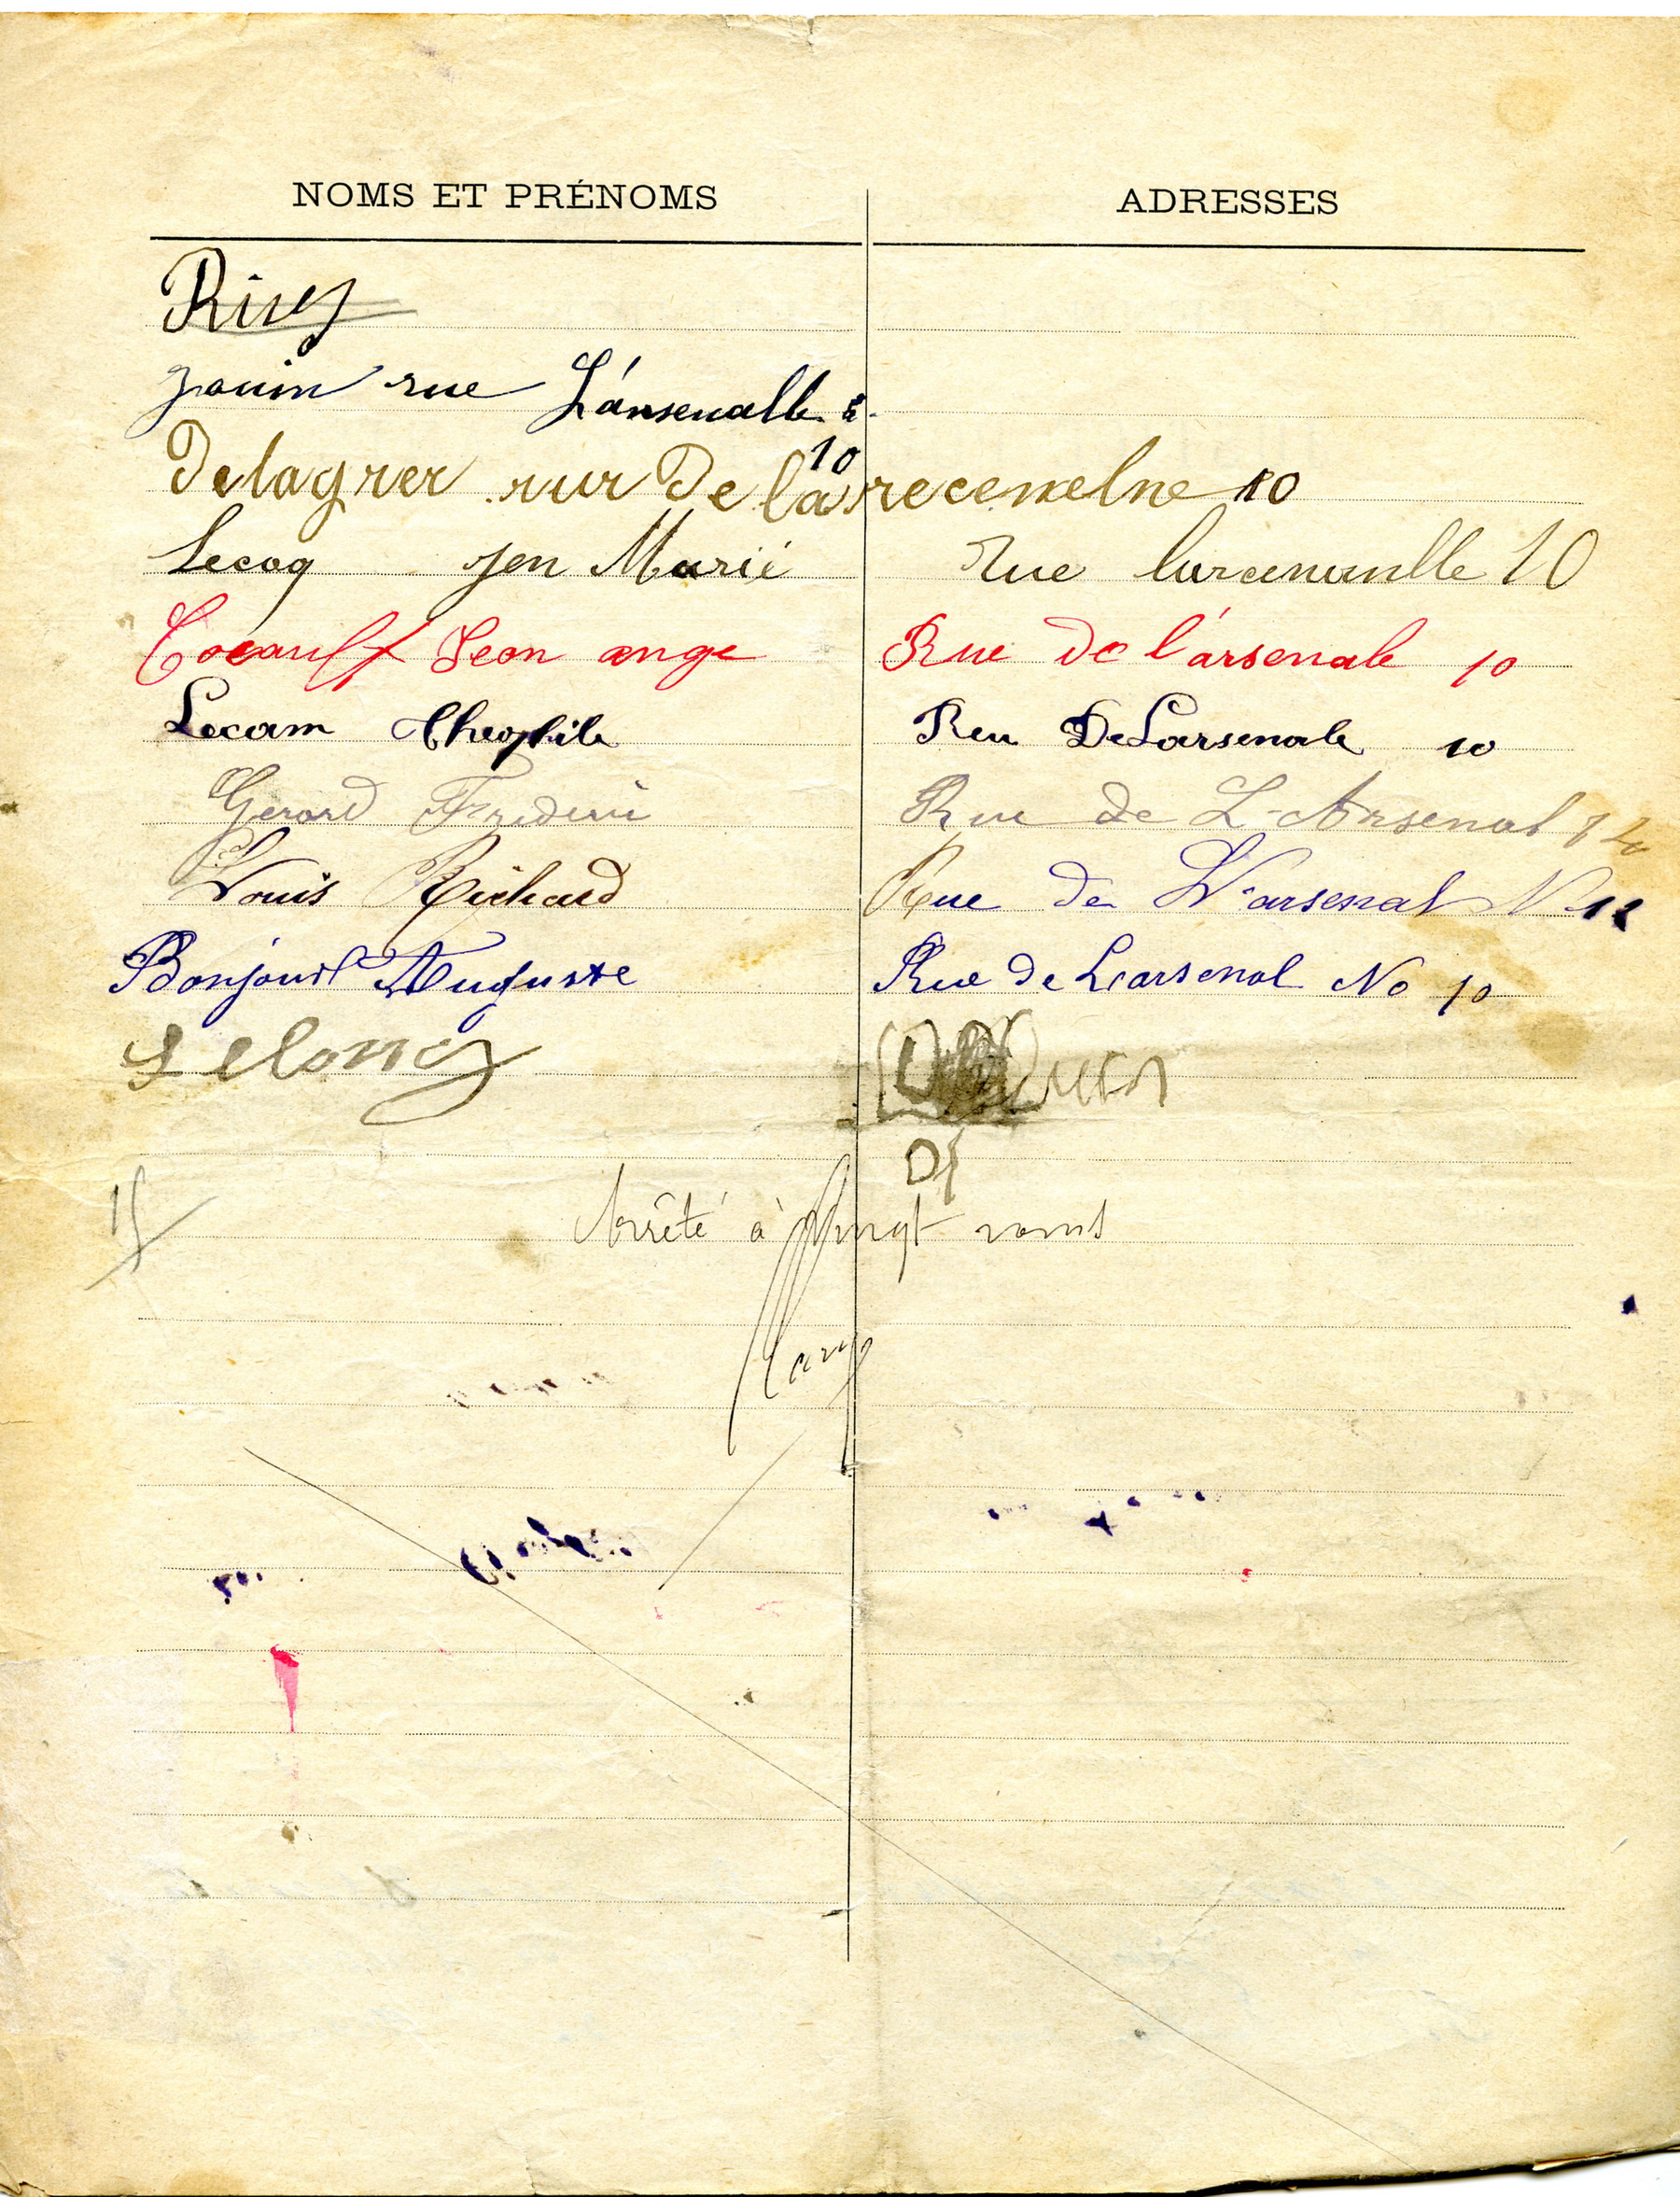 NOMS ET PRÉNOMS ADRESSES
Janin rue L'arsenalle 2.
10
Delagrer rur De la recenelne 10
Lecoq Jen Marie Rue larcenanlle 10
Leon ange Rue de l'arsenale 10
Lecam Theophile Reu De Larsenale 10
Gerard Frederic Rue de L'Arsenal 12
Louis Richard Rue de L'arsenal N 12
Bonjour Auguste Rue de Larsenal No 10
Lelong
Arrêté à Vingt noms